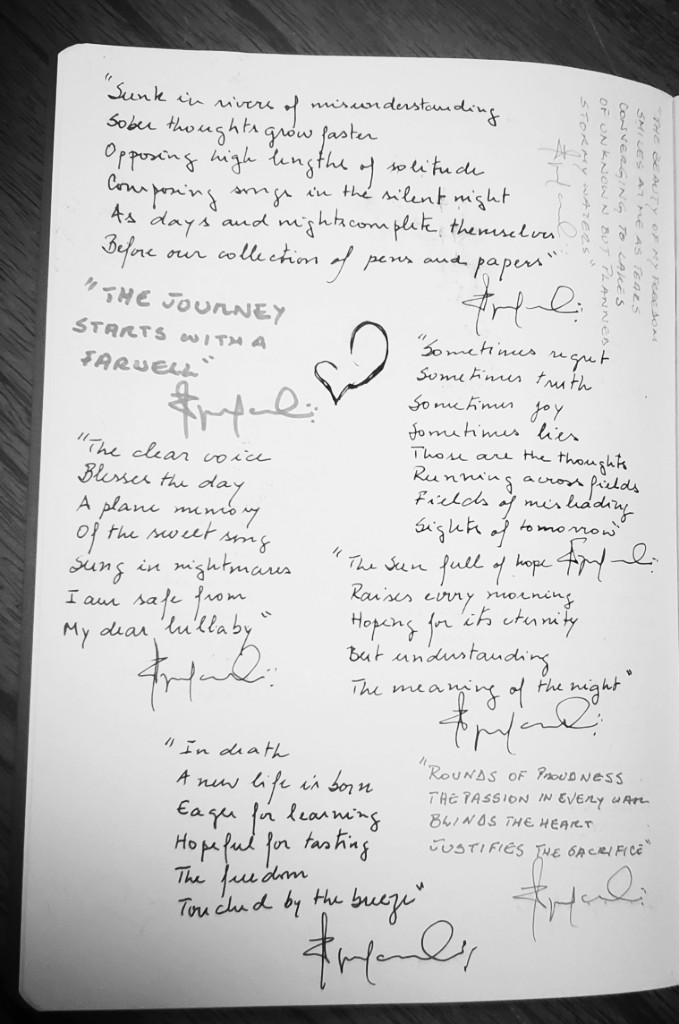 "Sunk in rivers of misunderstanding
Sober thoughts grow faster
Opposing high lengths of solitude
Composing songs in the silent night
As days and nights complete themselves
Before our collection of pens and papers"
"THE BEAUTY OF MY FREEDOM
SMILES AT ME AS TEARS
CONVERGING TO LAKES
OF UNKNOWN BUT PLANNED
STORMY WATERS"
"THE JOURNEY
STARTS WITH A
FARWELL"
"Sometimes regret
Sometimes truth
Sometimes joy
Sometimes lies
Those are the thoughts
Running across fields
Fields of misleading
Sights of tomorrow"
"The clear voice
Blesses the day
A plane memory
Of the sweet song
Sung in nightmares
I am safe from
My dear lullaby"
"The Sun full of hope
Raises every morning
Hoping for its eternity
But understanding
The meaning of the night"
"In death
A new life is born
Eager for learning
Hopeful for tasting
The freedom
Touched by the breeze"
"ROUNDS OF PROUDNESS
THE PASSION IN EVERY WAR
BLINDS THE HEART
JUSTIFIES THE SACRIFICE"